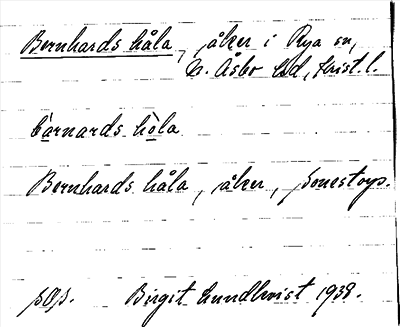 Bernhards håla, åker i Rya sn,
Ö. Åsbo hd, Krist. l.
bàrnards hòla
Bernhards håla, åker, Sonestorp.
Birgit Lundkvist 1938.